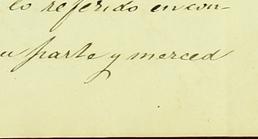 lo referido encon-
u parte y merced